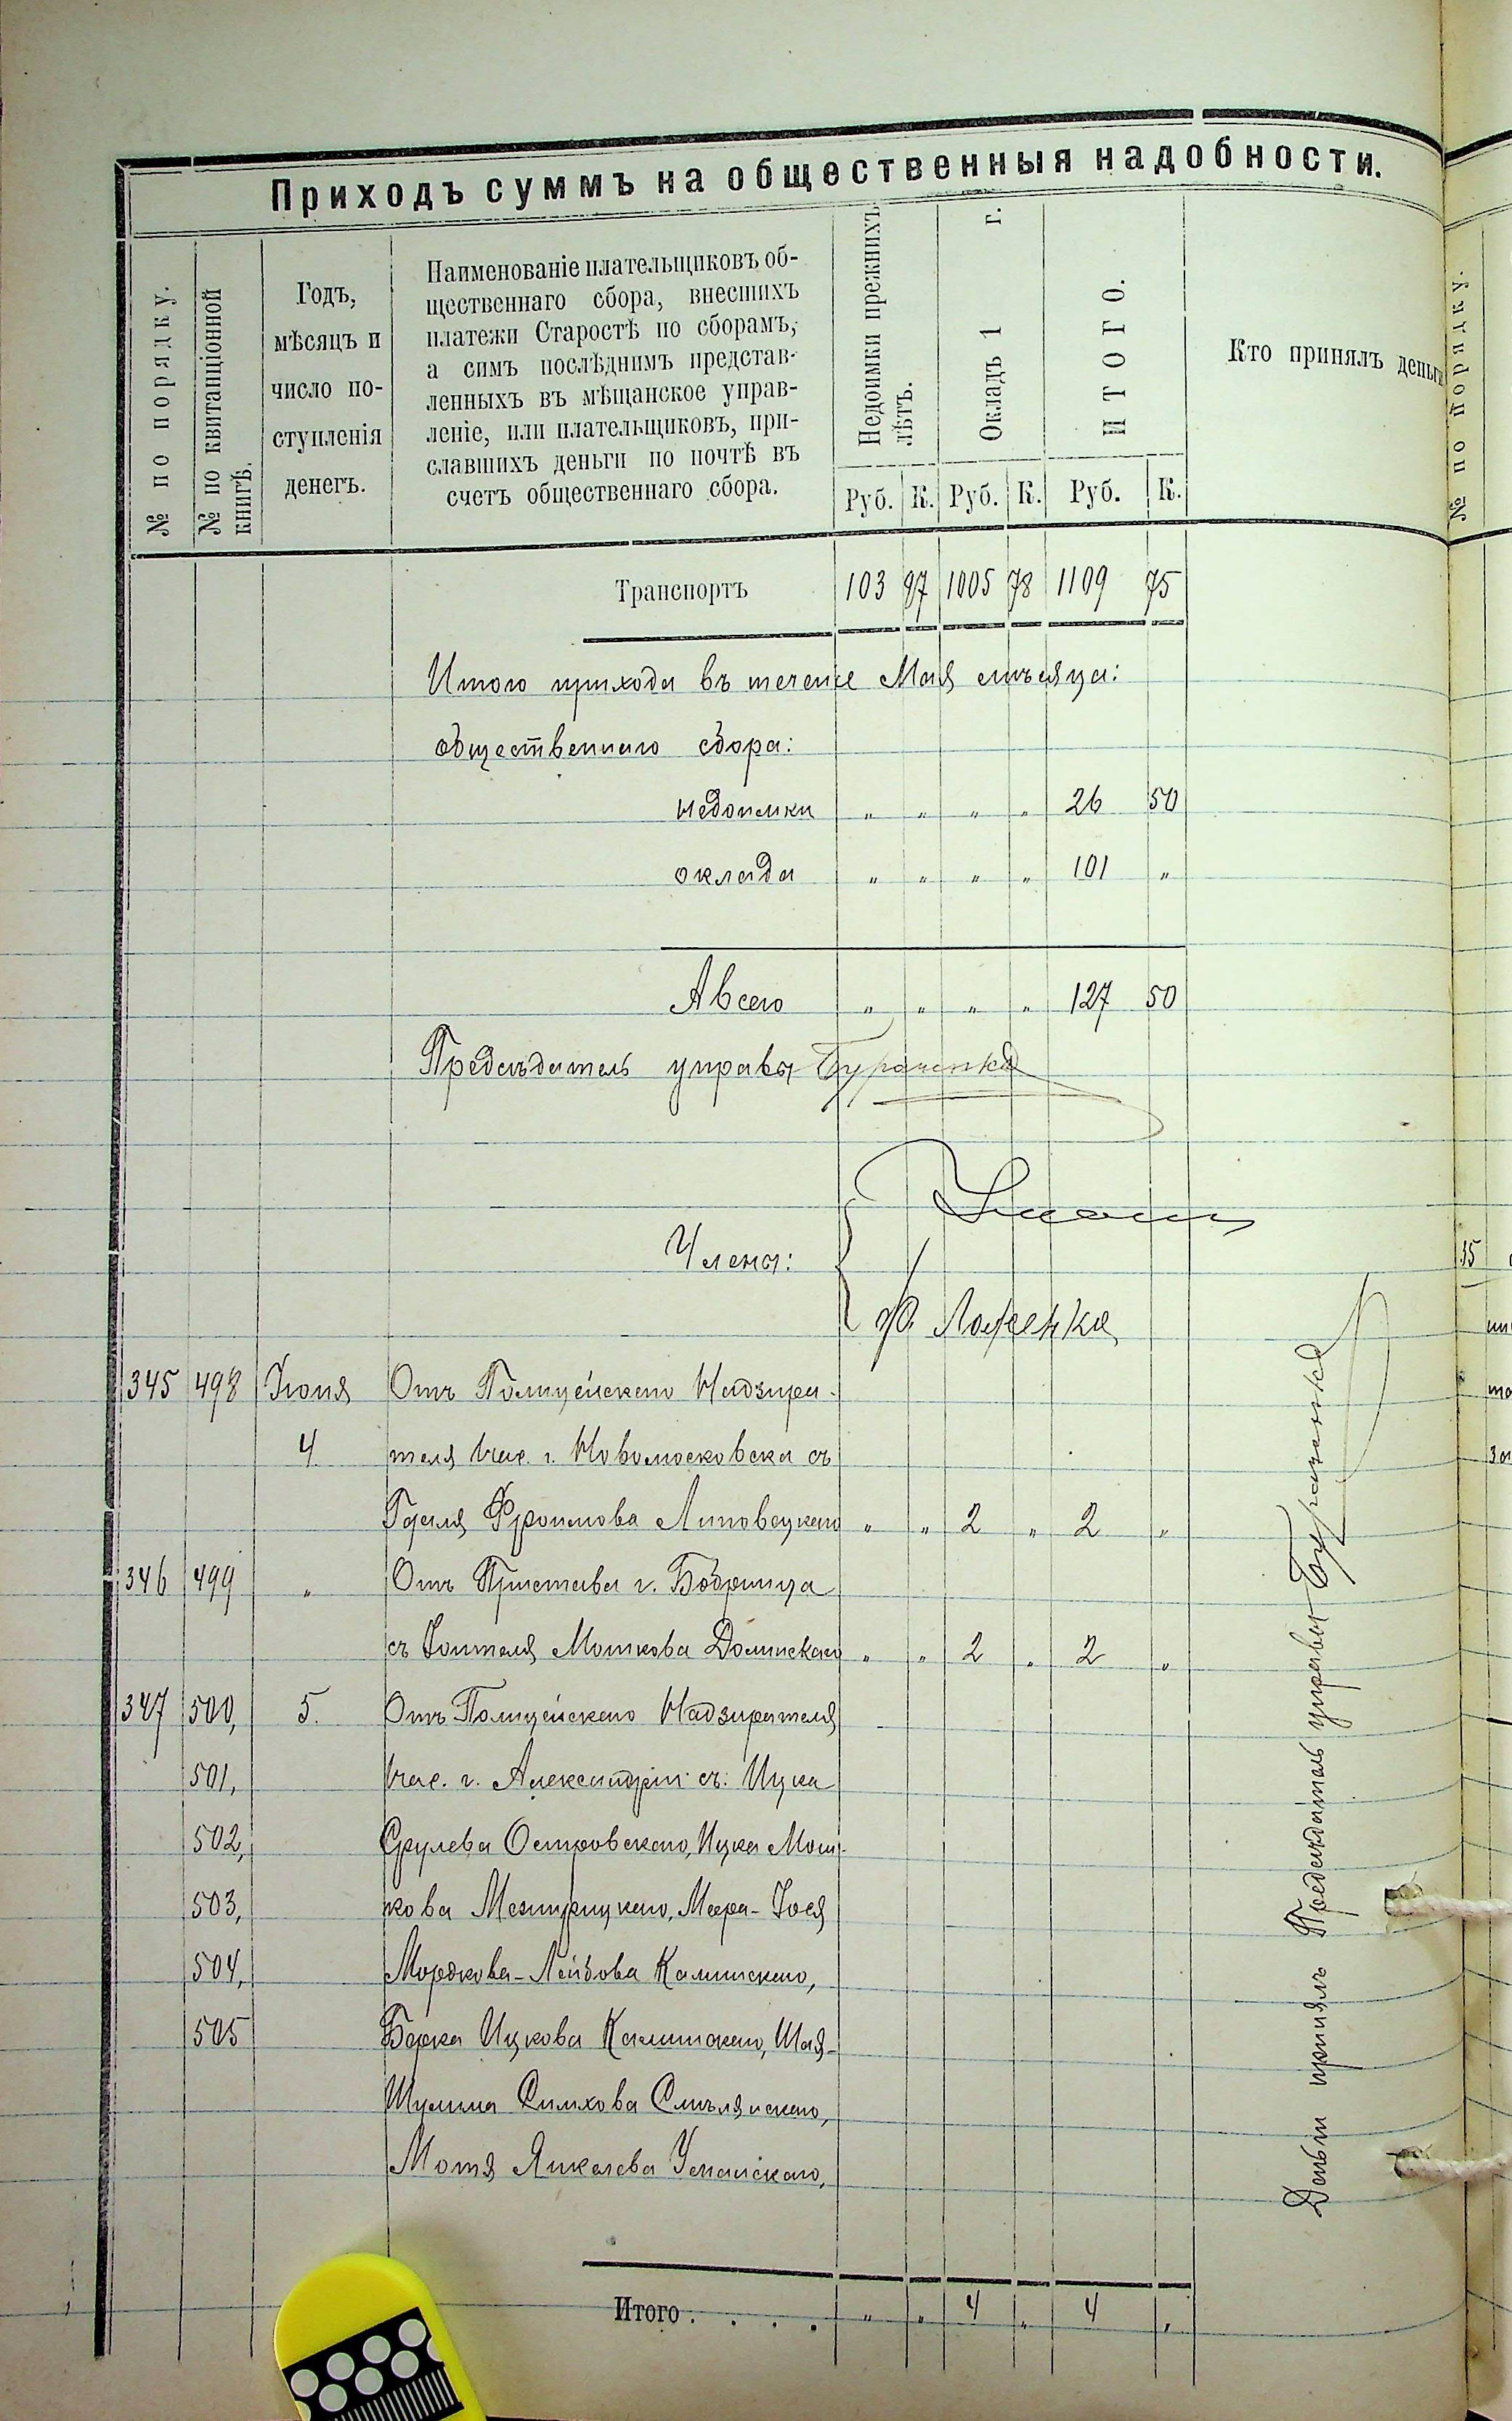 Приходъ суммъ на общественныя надобности.
№ по порядку.
№ по квитанціонной
книгѣ.
Годъ,
мѣсяцъ и
число по-
ступленія
денегъ.
Наименованіе плательщиковъ об-
щественнаго сбора, внесшихъ
платежи Старостѣ по сборамъ,
а симъ послѣднимъ представ-
ленныхъ въ мѣщанское управ-
леніе, или плательщиковъ, при-
славшихъ деньги по почтѣ въ
счетъ общественнаго сбора.
Недоимки прежнихъ
лѣтъ.
Окладъ 1 г.
ИТОГО.
Кто принялъ деньги
Руб. К. Руб. К. Руб. К.
Транспортъ 103 97 1005 78 1109 75
Итого прихода въ теченіе Мая мѣсяца:
общественнаго сбора:
недоимки " " " " 26 50
оклада " " " " 101 "
А всего " " " " 127 50
Предсѣдатель управы Бураченко
Члены:
345 498 Іюня Отъ Полицейскаго Надзира-
4. теля г. Новомосковска съ
Фроимова Липовецкаго " " 2 " 2 "
346 499 " Отъ Пристава г. Бобринца
съ Мошкова Долинскаго " " 2 " 2 "
347 500, 5. Отъ Полицейскаго Надзирателя
501, г. Александріи съ: Ицка
502, Срулева Островскаго, Ицка Мош-
503, кова Межирицкаго, Меера-Іося
504, Мордкова-Лейбова Калинскаго,
505 Берка Ицкова Калинскаго, Шая-
Шулима Симхова Смѣлянскаго,
Мотя Янкелева Уманскаго,
Итого . . . . " " 4 " 4 "
Деньги принялъ Предсѣдатель управы Бураченко
№ по порядку.
35